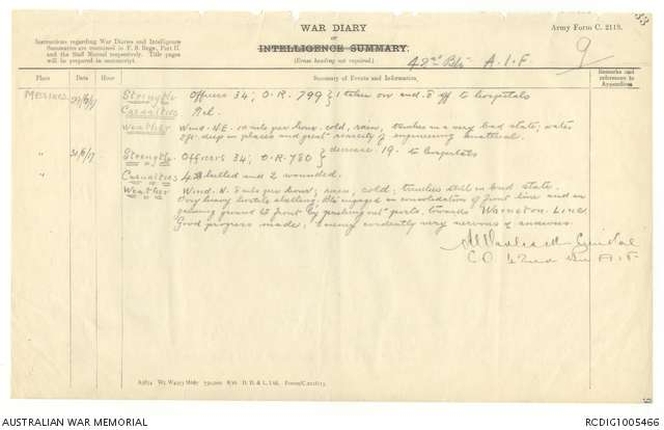 33
WAR DIARY
or
INTELLIGENCE SUMMARY.
(Erase heading not required.)
Army Form C. 2118.
Instructions regarding War Diaries and Intelligence
Summaries are contained in F. S. Regs., Part II.
and the Staff Manual respectively. Title pages
will be prepared in manuscript.
42nd Bn A.I.F.
9
Place Date Hour Summary of Events and Information Remarks and references to Appendices
MESSINES Strength Officers 34; O.R. 799 } 1 taken on and 8 off to hospitals
Casualties Nil.
Weather Wind N.E. miles per hour. cold, rain, trenches in a very bad state; water
deep in places and great scarcity of engineering material.
" Strength Officers 34; O.R. 780 } decrease 19. to hospitals
" Casualties 4 killed and 2 wounded.
Weather Wind. N. 8 miles per hour; rain, cold; trenches still in bad state.
Very heavy hostile shelling. engaged in consolidation of front line and in
gaining ground to front by "pushing out" posts, towards Warneton Line.
Good progress made; enemy evidently very nervous & anxious.
CO 42nd Bn A.I.F
AUSTRALIAN WAR MEMORIAL
RCDIG1005466